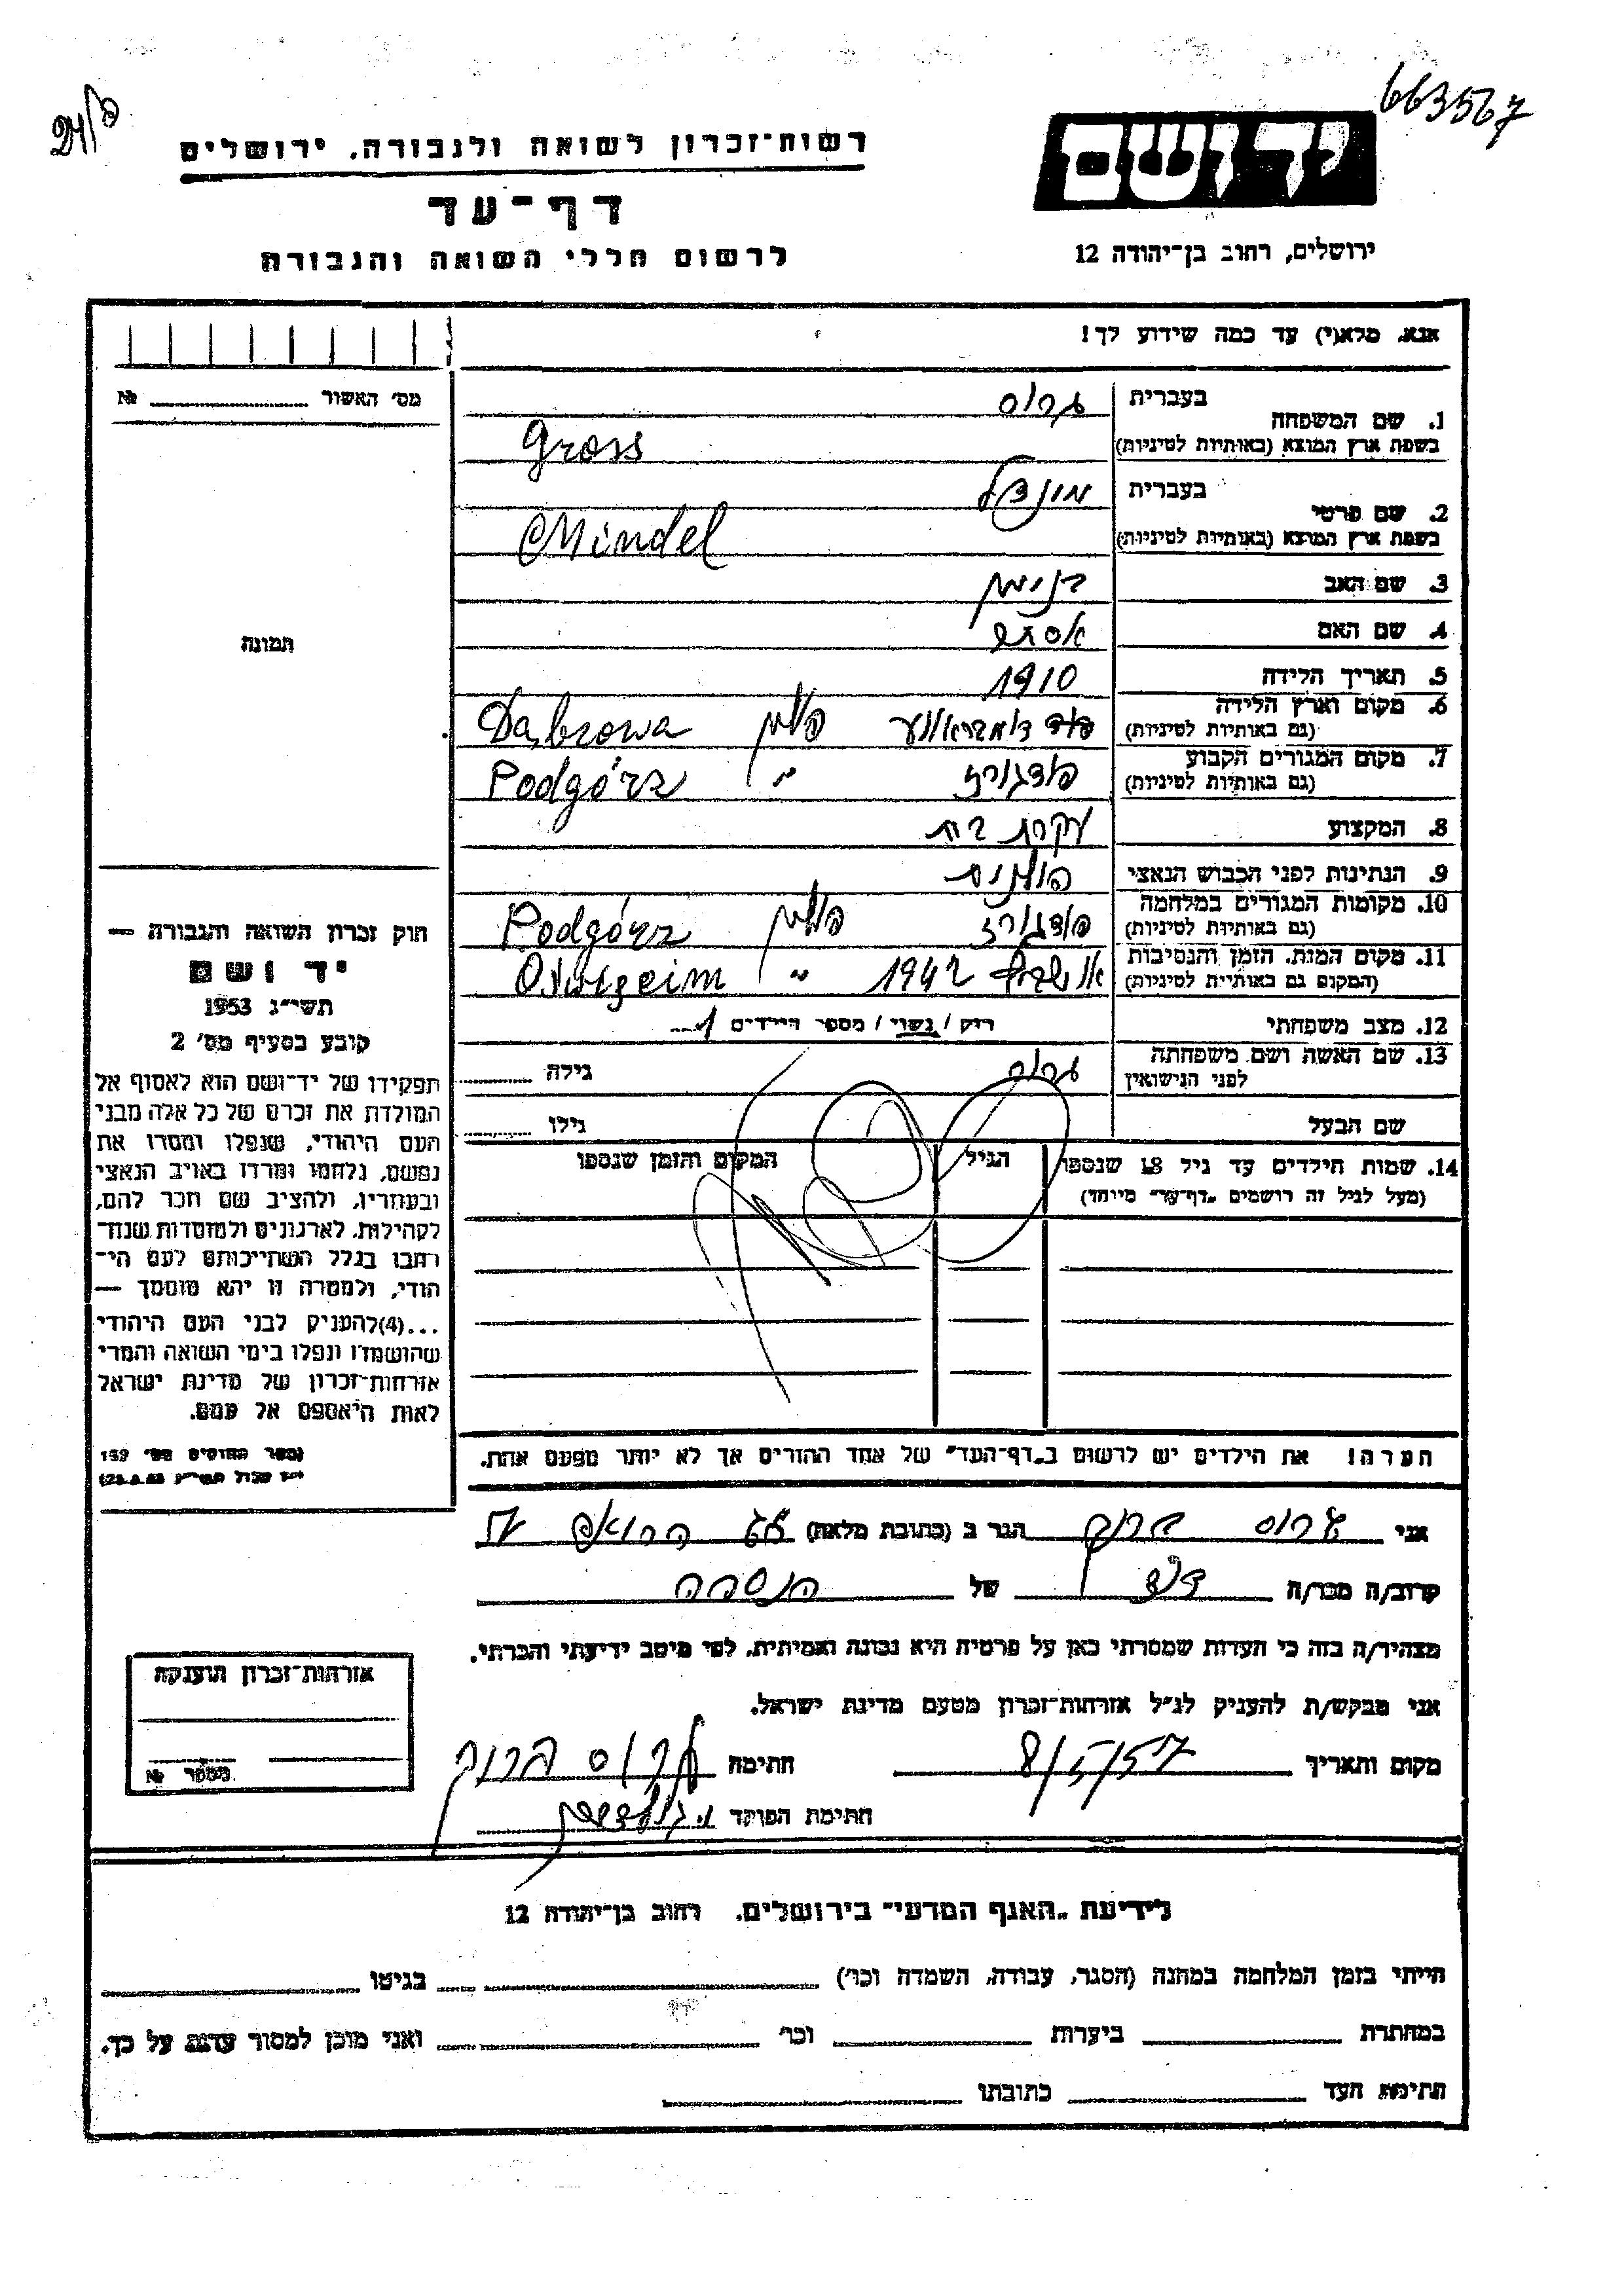 663567
רשות־זכרון לשואה ולגבורה. ירושלים
דף־עד
לרשום חללי השואה והגבורה
יד ושם
ירושלים, רחוב בן־יהודה 12
אנא, מלא(י) עד כמה שידוע לך!
מס׳ האשור №
תמונה
1. שם המשפחה בעברית גרוס
בשפת ארץ המוצא (באותיות לטיניות) Gross
2. שם פרטי בעברית מינדל
בשפת ארץ המוצא (באותיות לטיניות) Mindel
3. שם האב בנימין
4. שם האם אסתר
5. תאריך הלידה 1910
6. מקום וארץ הלידה דאמבראווע פולין Dąbrowa
(גם באותיות לטיניות)
7. מקום המגורים הקבוע פודגורז " Podgórz
(גם באותיות לטיניות)
8. המקצוע עקרת בית
9. הנתינות לפני הכבוש הנאצי פולנית
10. מקומות המגורים במלחמה פודגורז פולין Podgórz
(גם באותיות לטיניות)
11. מקום המות, הזמן והנסיבות 1942 "
(המקום גם באותיות לטיניות)
12. מצב משפחתי רוק / נשוי / מספר הילדים 1
13. שם האשה ושם משפחתה גרוס גילה
לפני הנישואין
שם הבעל גילו
14. שמות הילדים עד גיל 18 שנספו הגיל המקום והזמן שנספו
(מעל לגיל זה רושמים „דף־עד״ מיוחד)
הערה! את הילדים יש לרשום ב„דף־העד״ של אחד ההורים אך לא יותר מפעם אחת.
חוק זכרון השואה והגבורה —
יד ושם
תשי״ג 1953
קובע בסעיף מס׳ 2
תפקידו של יד־ושם הוא לאסוף אל
המולדת את זכרם של כל אלה מבני
העם היהודי, שנפלו ומסרו את
נפשם, נלחמו ומרדו באויב הנאצי
ובעוזריו, ולהציב שם וזכר להם,
לקהילות, לארגונים ולמוסדות שנח־
רבו בגלל השתייכותם לעם הי־
הודי, ולמטרה זו יהא מוסמך —
...(4)להעניק לבני העם היהודי
שהושמדו ונפלו בימי השואה והמרי
אזרחות־זכרון של מדינת ישראל
לאות היאספם אל עמם.
(ספר החוקים מס׳ 132
אני גרוס ברוך הגר ב (כתובת מלאה)
קרוב/ה מכר/ה של
מצהיר/ה בזה כי העדות שמסרתי כאן על פרטיה היא נכונה ואמיתית, לפי מיטב ידיעתי והכרתי.
אני מבקש/ת להעניק לנ״ל אזרחות־זכרון מטעם מדינת ישראל.
מקום ותאריך חתימה גרוס ברוך
חתימת הפוקד
אזרחות־זכרון הוענקה
מספר №
לידיעת „האגף המדעי״ בירושלים. רחוב בן־יהודה 12
הייתי בזמן המלחמה במחנה (הסגר, עבודה, השמדה וכו׳) בגיטו
במחתרת ביערות וכו׳ ואני מוכן למסור עדות על כך.
חתימת העד כתובתו